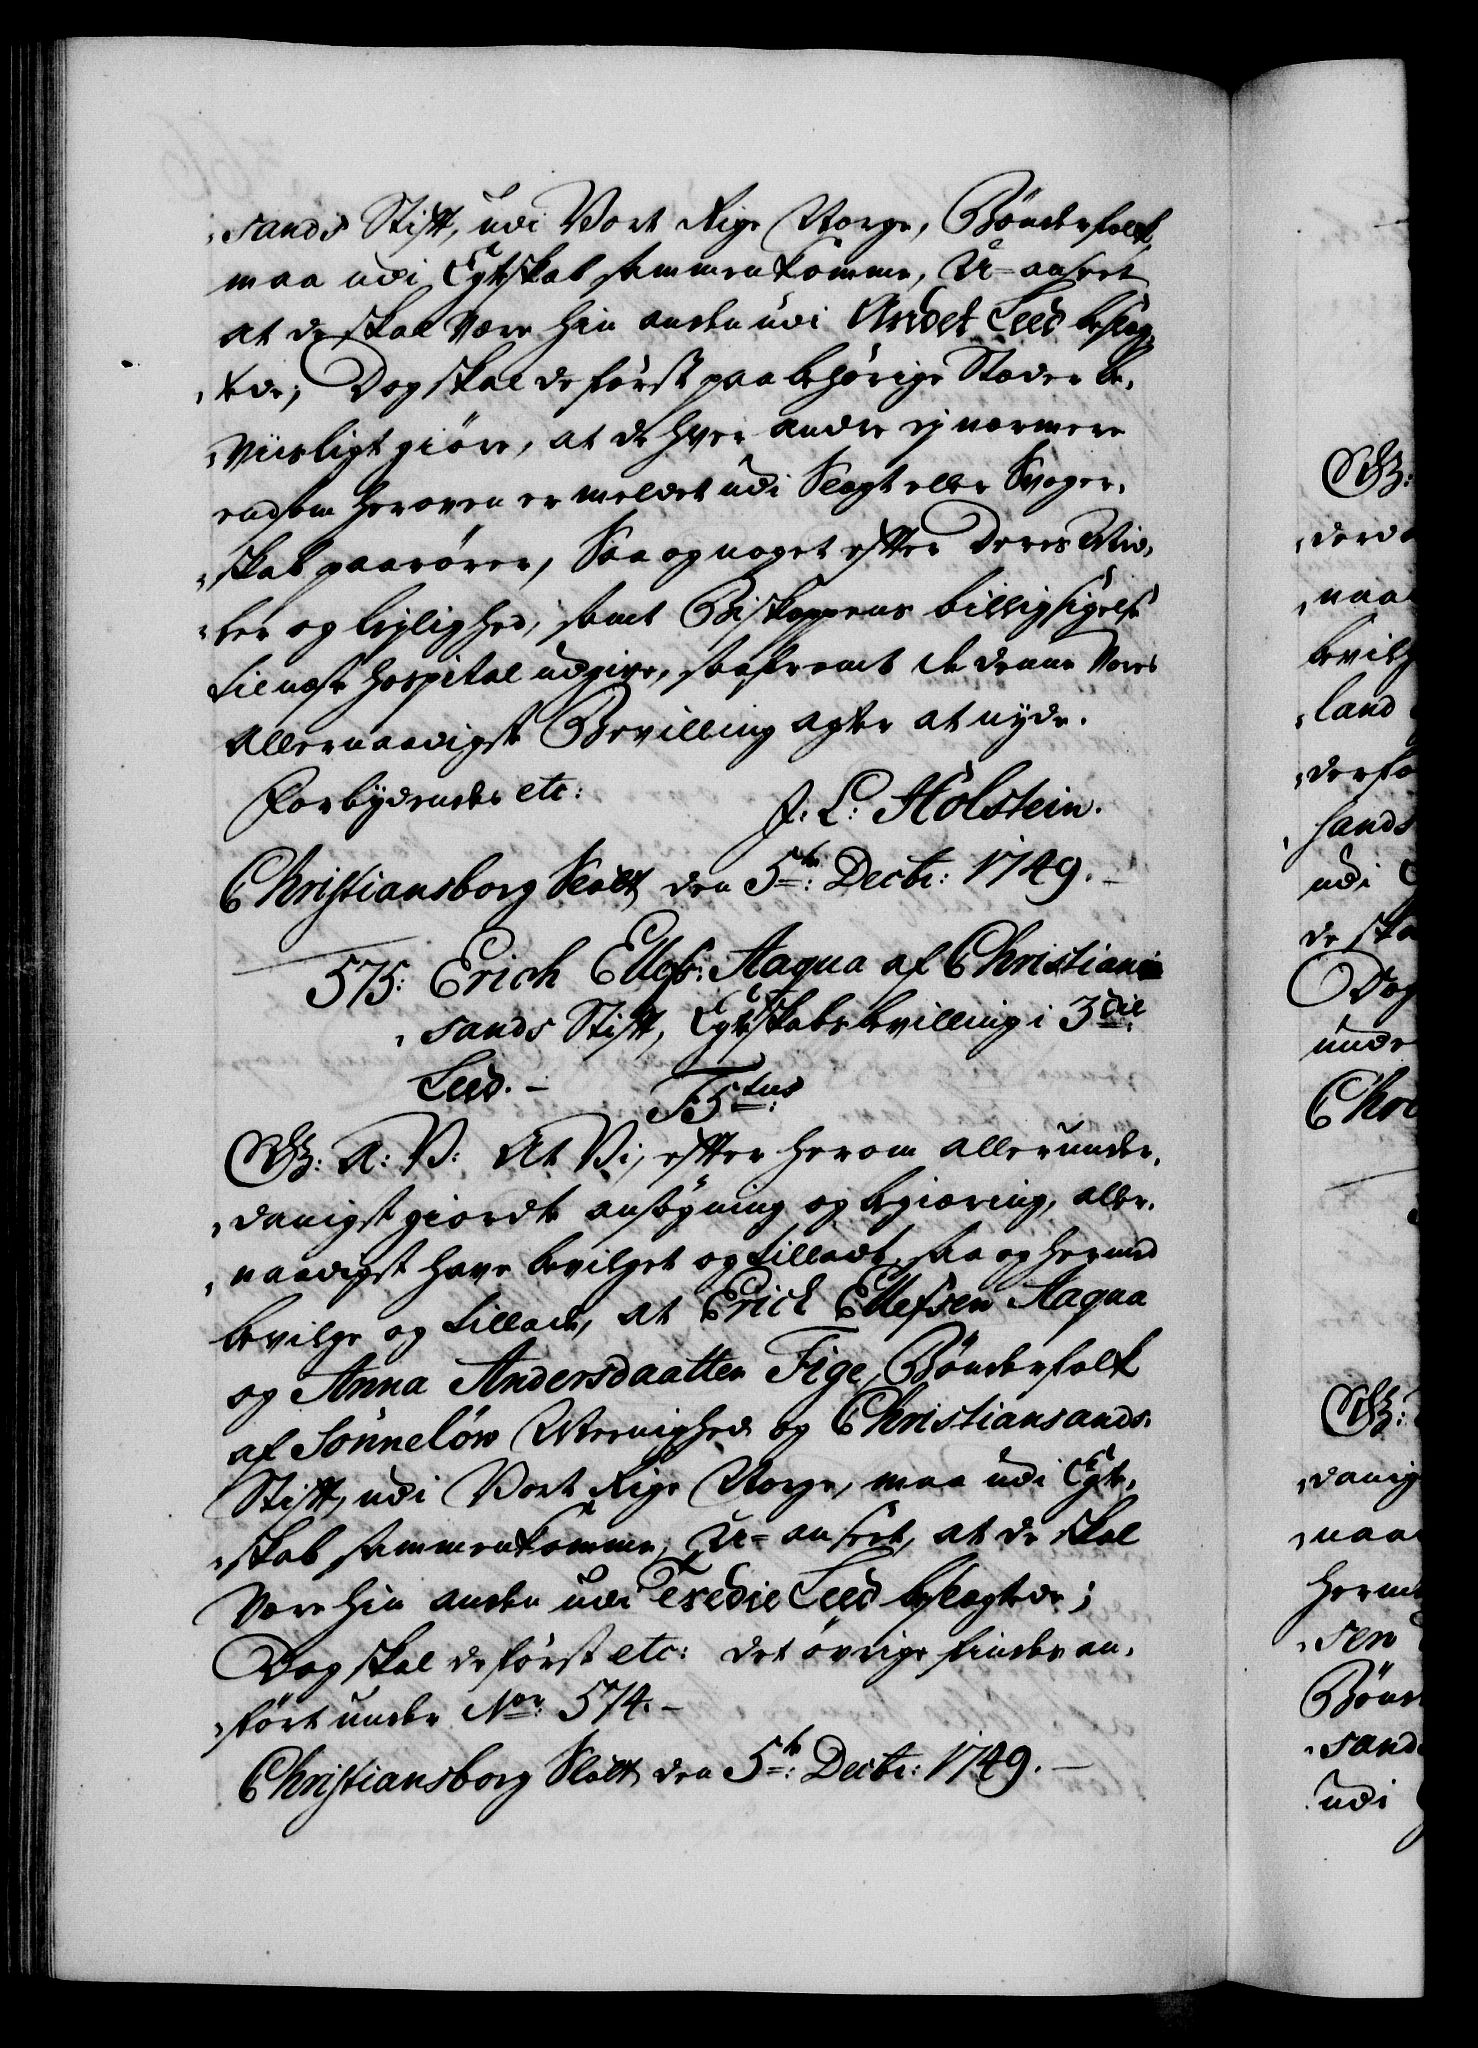 „sands Stift, udi Vort Rige Norge, Bönderfolk,
maa udi Egteskab sammenkomme, U-anseet
at de skal være hin anden udi Andet Leed beslæg-
„tede; Dog skal de först paa behörige Stæder be-
„viisligt giöre, at de hver andre ej nærmere
end som heroven er meldet udi Slægt eller Svoger-
„skab paarörer, Saa og noget efter Deres Mid-
„ler og lejlighed, samt Biskoppens billigsigelse
til næste Hospital udgive, saafremt de denne Vores
allernaadigste Bevilling agter at nyde.
Forbydendes etc: J: L: Holstein.
Christiansborg Slott den 5te: Decbr: 1749. –
575: Erich Ellefs: Aaqua af Christian-
„sands Stift, Egteskabs bevilling i 3die
Leed. – F5tus
G: A: V: At Vi, efter herom allerunder-
„danigst giorde ansögning og begiæring, aller-
„naadigst have bevilget og tilladt, saa og hermed
bevilge og tillade, at Erick Ellefsen Aaqua
og Anna Andersdaatter Fige, Bönderfolk
af Sönnelöw Meenighed og Christiansands
Stift, udi Vort Rige Norge, maa udi Egte-
„skab sammenkomme, U-anseet, at de skal
være hin anden udi Tredie Leed beslægtede;
Dog skal de först etc: det övrige findes an-
„fört under Nor: 574. –
Christiansborg Slott den 5te: Decbr: 1749. –